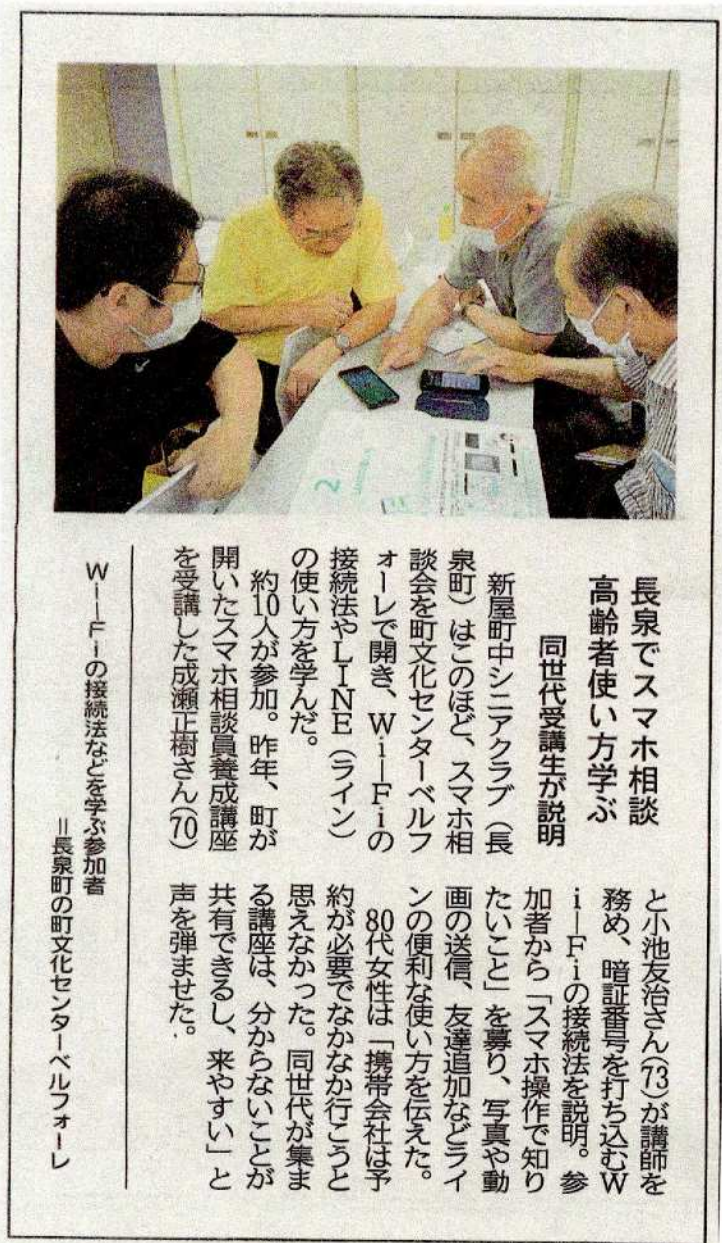 長泉でスマホ相談
高齢者使い方学ぶ
同世代受講生が説明
新屋町中シニアクラブ（長
泉町）はこのほど、スマホ相
談会を町文化センターベルフ
ォーレで開き、Wi―Fiの
接続法やLINE（ライン）
の使い方を学んだ。
約10人が参加。昨年、町が
開いたスマホ相談員養成講座
を受講した成瀬正樹さん(70)
と小池友治さん(73)が講師を
務め、暗証番号を打ち込むW
i―Fiの接続法を説明。参
加者から「スマホ操作で知り
たいこと」を募り、写真や動
画の送信、友達追加などライ
ンの便利な使い方を伝えた。
80代女性は「携帯会社は予
約が必要でなかなか行こうと
思えなかった。同世代が集ま
る講座は、分からないことが
共有できるし、来やすい」と
声を弾ませた。
W―Fiの接続法などを学ぶ参加者
＝長泉町の町文化センターベルフォーレ
2